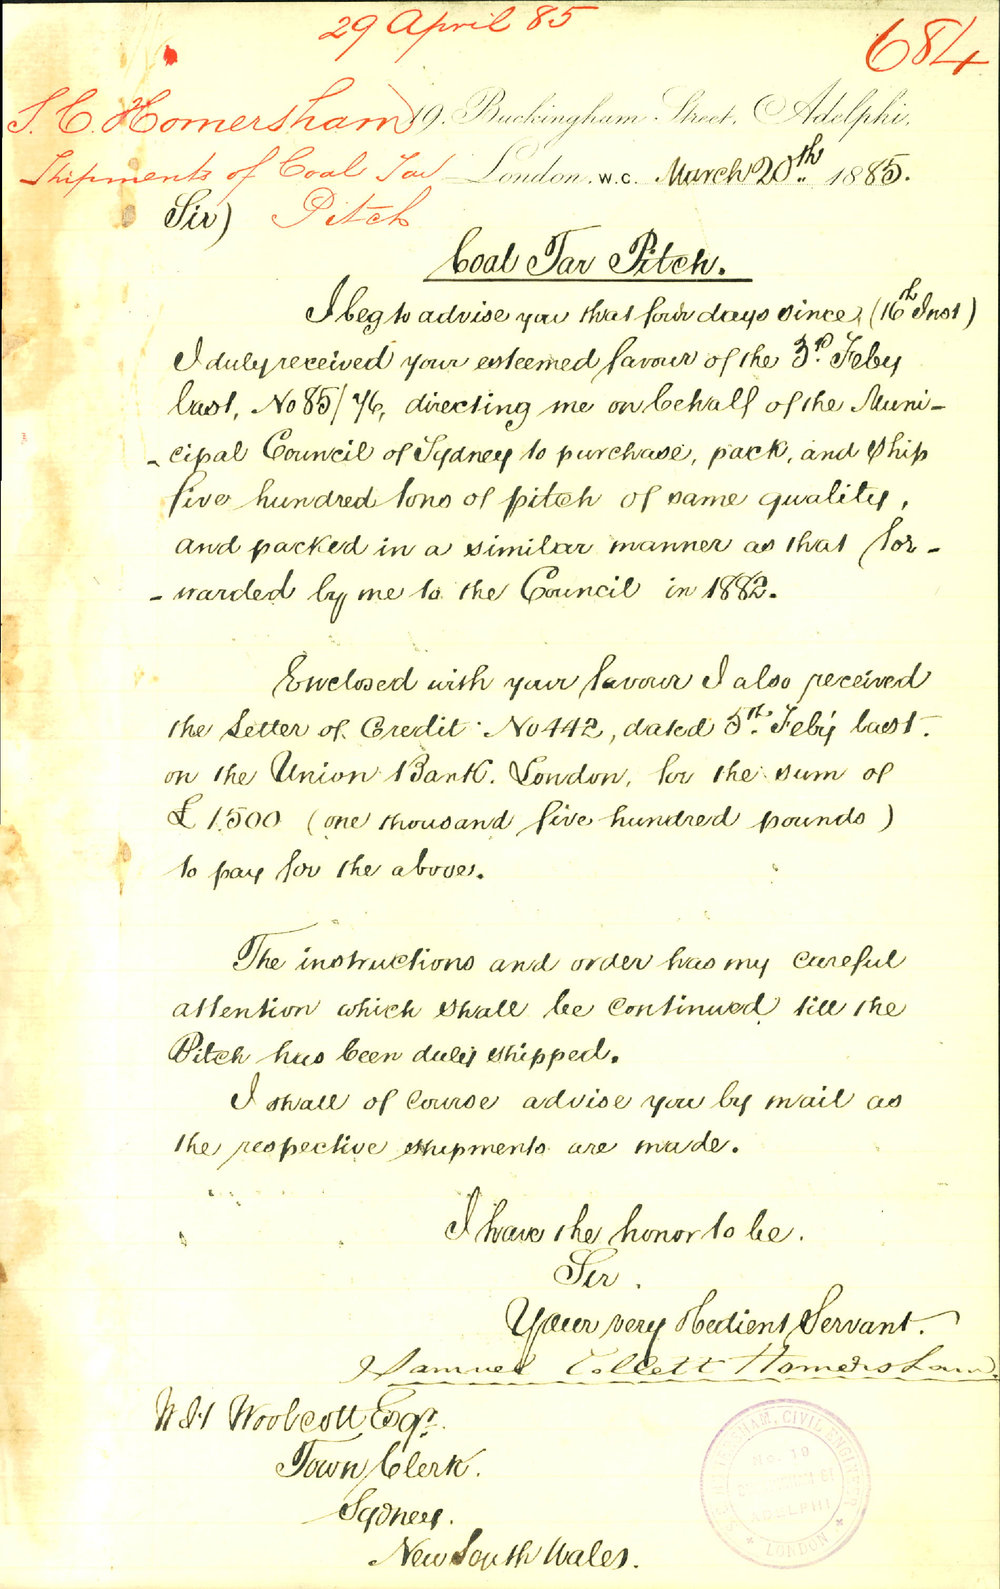 29 April 85
684
S. C. Homersham
19. Buckingham Street, Adelphi,
Shipments of Coal Tar
London. W.C. March 20th. 1885.
Pitch
Sir)
Coal Tar Pitch.
I beg to advise you that four days since, (16th Inst)
I duly received your esteemed favour of the 3rd. Feby
last, No 85/76, directing me on behalf of the Muni-
-cipal Council of Sydney to purchase, pack, and ship
five hundred tons of pitch of same quality,
and packed in a similar manner as that for-
-warded by me to the Council in 1882.
Enclosed with your favour I also received
the Letter of Credit No 442, dated 5th. Feby last.
on the Union Bank. London, for the sum of
£1.500 (one thousand five hundred pounds)
to pay for the above.
The instructions and order has my careful
attention which shall be continued till the
Pitch has been duly shipped.
I shall of course advise you by mail as
the respective shipments are made.
I have the honor to be.
Sir.
Your very obedient Servant.
Samuel Collett Homersham
Woolcott, Esqr.
Town Clerk.
Sydney.
New South Wales.
CIVIL ENGINEER
No. 19
ADELPHI
LONDON